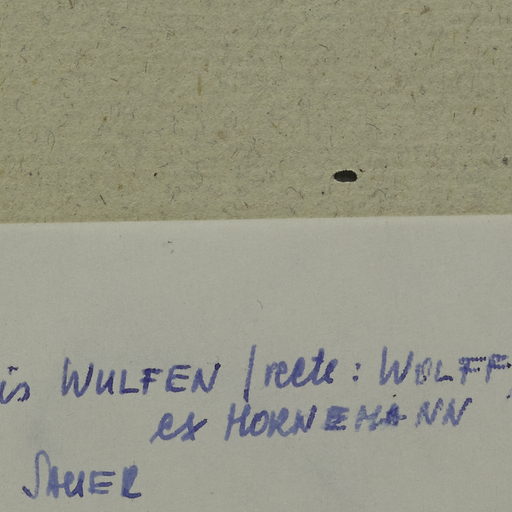 is WULFEN / recte: WOLFF,
ex HORNEMANN
SAUER